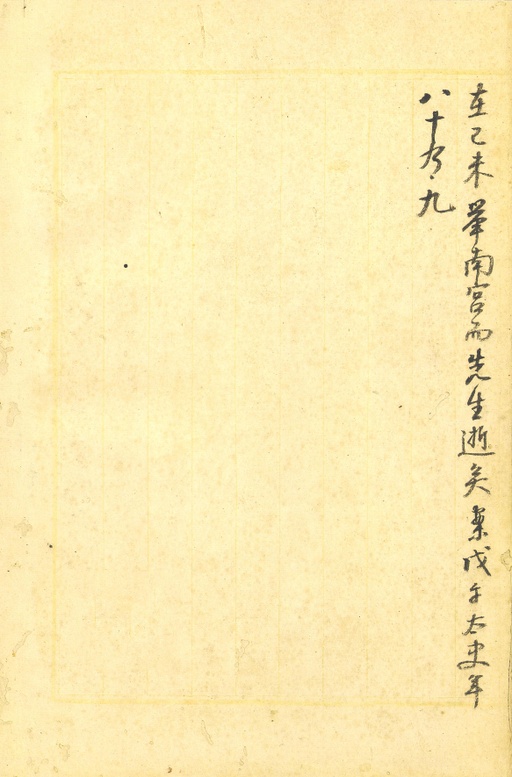 在己未舉南宮而先生逝矣案戊午太史年
八十有九